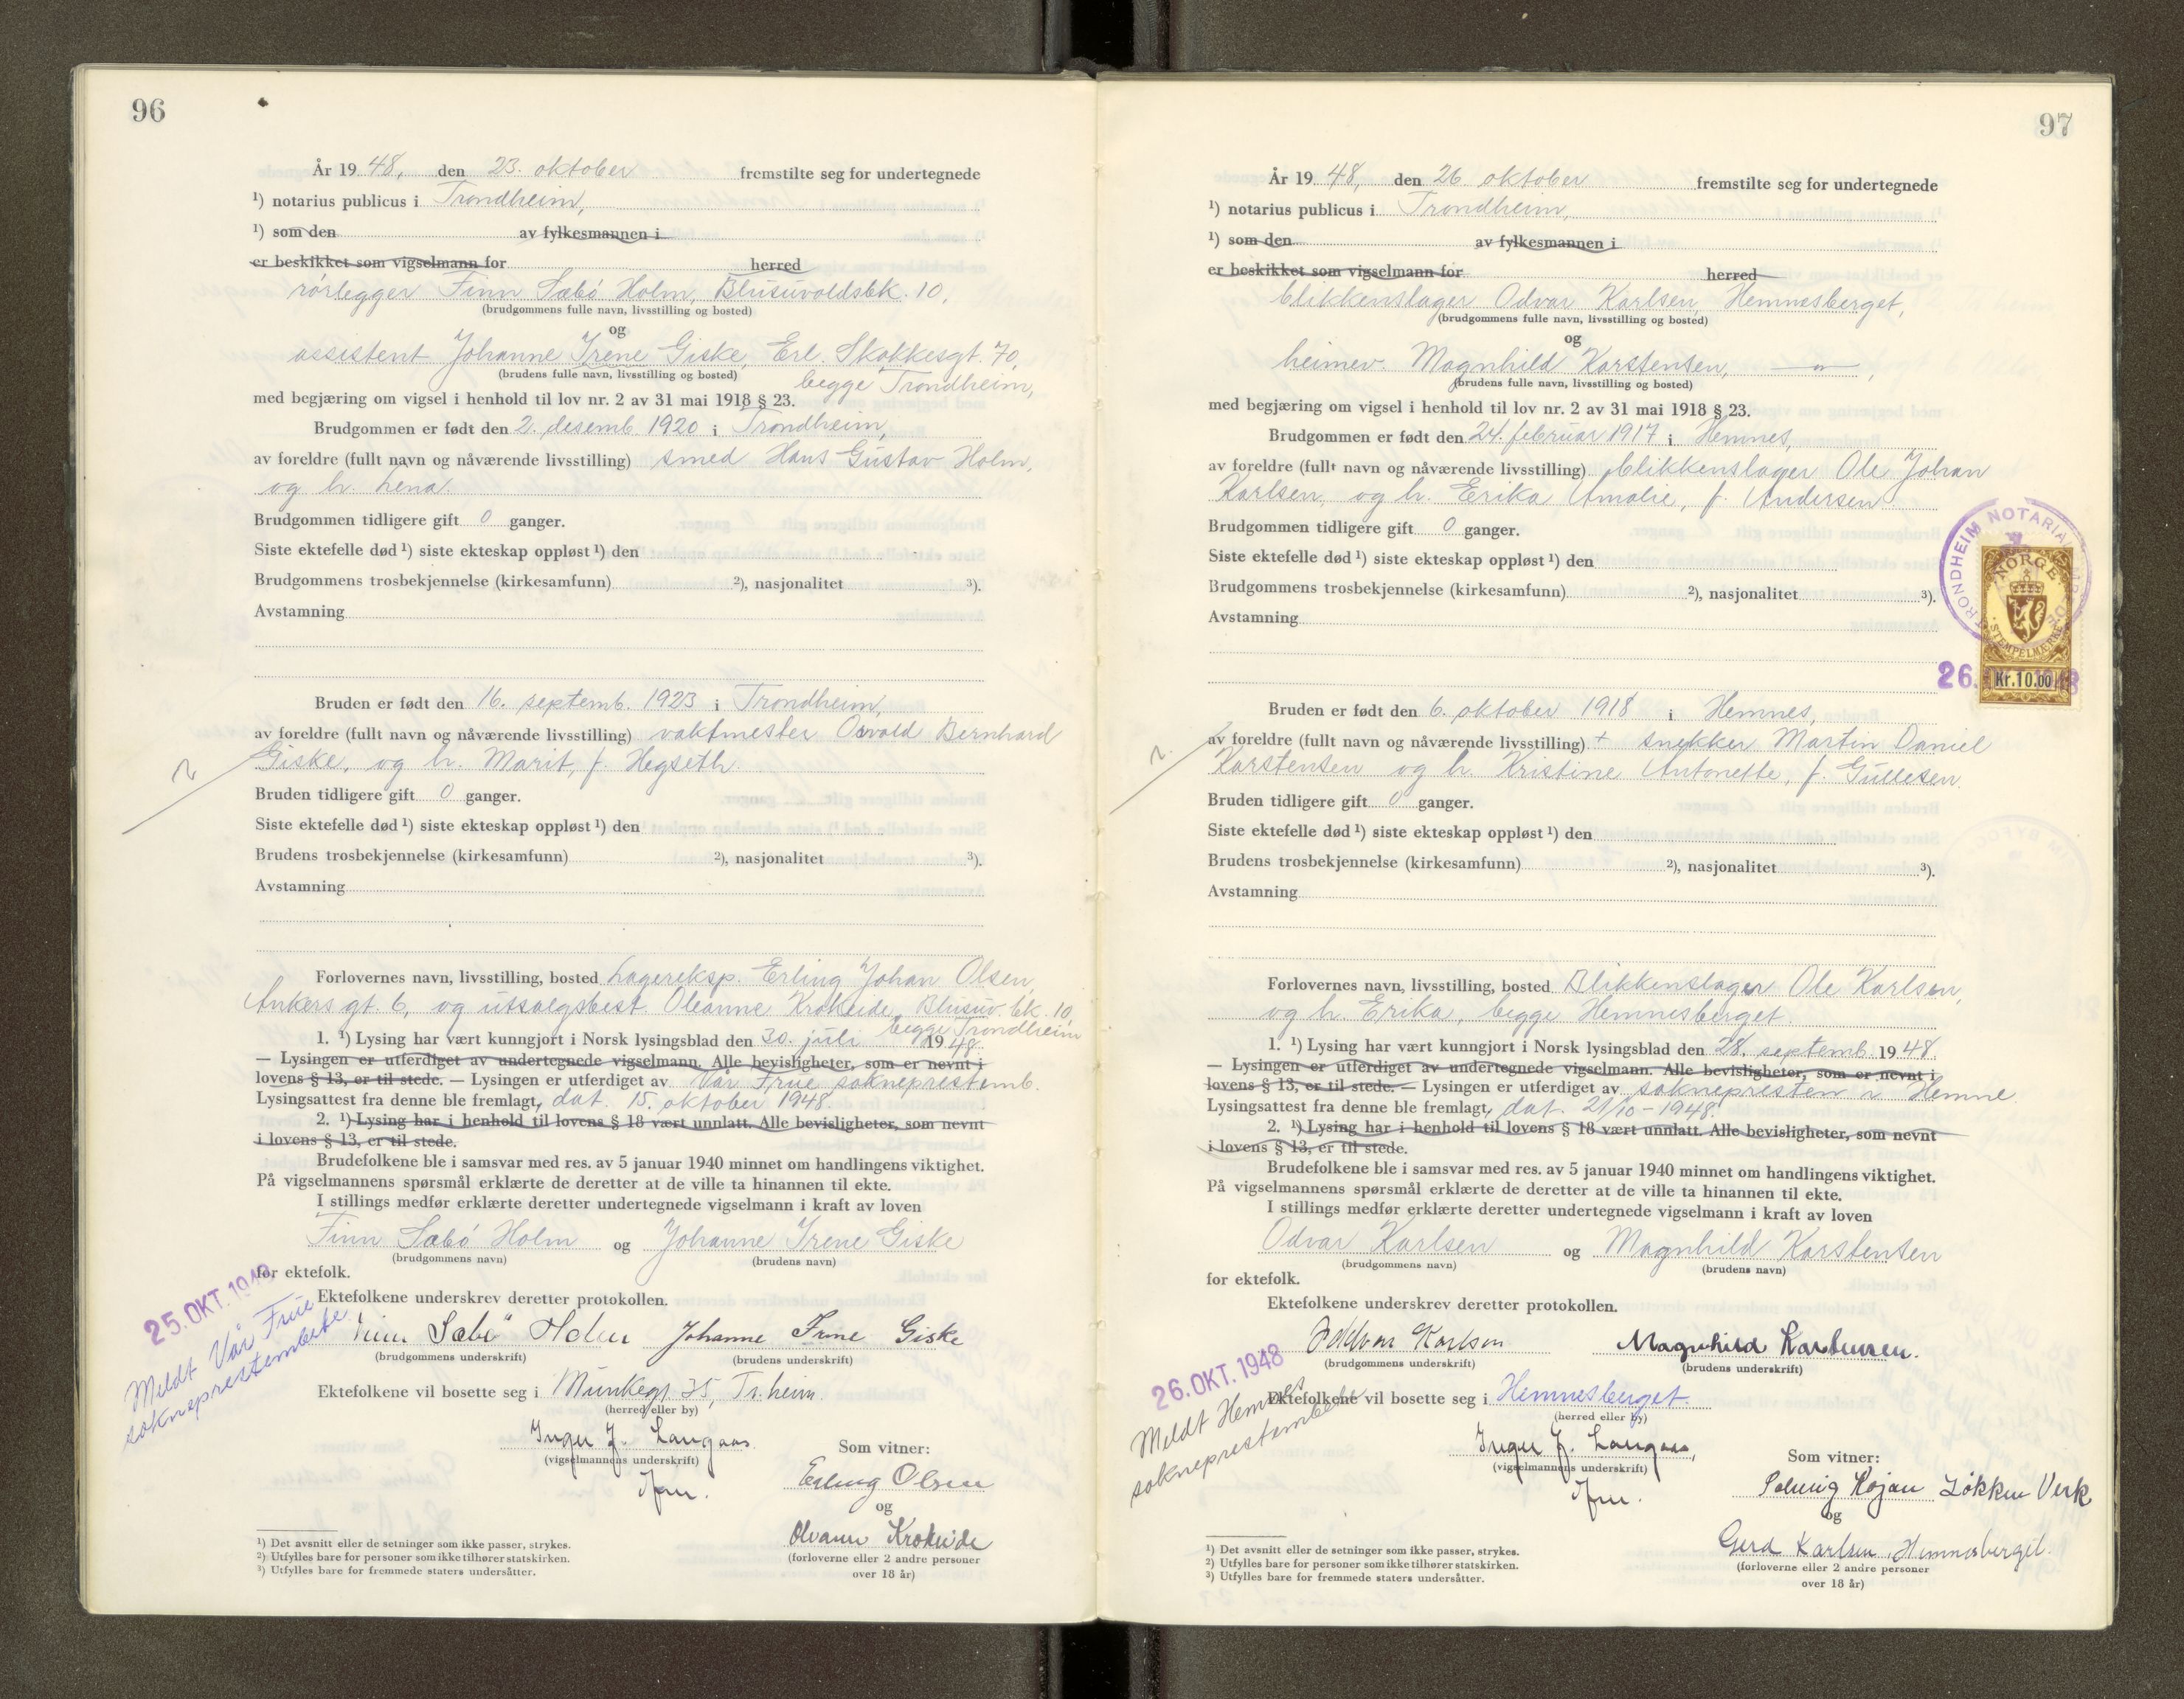 96
År 19 48, den 23. oktober fremstilte seg for undertegnede
¹) notarius publicus i Trondheim,
¹) som den av fylkesmannen i
er beskikket som vigselmann for herred
rørlegger Finn Sæbö Holm, Blusuvoldsbk. 10,
(brudgommens fulle navn, livsstilling og bosted)
og
assistent Johanne Irene Giske, Erl. Skakkesgt. 70,
(brudens fulle navn, livsstilling og bosted)
begge Trondheim,
med begjæring om vigsel i henhold til lov nr. 2 av 31 mai 1918 § 23.
Brudgommen er født den 2. desemb. 1920 i Trondheim,
av foreldre (fullt navn og nåværende livsstilling) smed Hans Gustav Holm,
og h. Lena.
Brudgommen tidligere gift 0 ganger.
Siste ektefelle død ¹) siste ekteskap oppløst ¹) den
Brudgommens trosbekjennelse (kirkesamfunn) ²), nasjonalitet ³).
Avstamning
Bruden er født den 16. septemb. 1923 i Trondheim,
av foreldre (fullt navn og nåværende livsstilling) vaktmester Osvald Bernhard
Giske, og h. Marit, f. Hegseth.
Bruden tidligere gift 0 ganger.
Siste ektefelle død ¹) siste ekteskap oppløst ¹) den
Brudens trosbekjennelse (kirkesamfunn) ²), nasjonalitet ³).
Avstamning
Forlovernes navn, livsstilling, bosted Lagereksp. Erling Johan Olsen,
Ankers gt 6, og utsalgsbest. Oleanne Krokeide, Blusuv. bk. 10,
begge Trondheim
1. ¹) Lysing har vært kunngjort i Norsk lysingsblad den 30. juli 1948.
— Lysingen er utferdiget av undertegnede vigselmann. Alle bevisligheter, som er nevnt i
lovens § 13, er til stede. — Lysingen er utferdiget av Vår Frue sokneprestemb.
Lysingsattest fra denne ble fremlagt, dat. 15. oktober 1948.
2. ¹) Lysing har i henhold til lovens § 18 vært unnlatt. Alle bevisligheter, som nevnt
i lovens § 13, er til stede.
Brudefolkene ble i samsvar med res. av 5 januar 1940 minnet om handlingens viktighet.
På vigselmannens spørsmål erklærte de deretter at de ville ta hinannen til ekte.
I stillings medfør erklærte deretter undertegnede vigselmann i kraft av loven
Finn Sæbö Holm og Johanne Irene Giske
(brudgommens navn) (brudens navn)
for ektefolk.
25. OKT. 1948
Meldt Vår Frue
sokneprestembete
Ektefolkene underskrev deretter protokollen.
Finn Sæbö Holm Johanne Irene Giske
(brudgommens underskrift) (brudens underskrift)
Ektefolkene vil bosette seg i Munkegt. 35, Tr.heim.
(herred eller by)
Inger J. Langaas
(vigselmannens underskrift)
Som vitner:
Erling Olsen
og
Oleanne Krokeide
(forloverne eller 2 andre personer
over 18 år)
¹) Det avsnitt eller de setninger som ikke passer, strykes.
²) Utfylles bare for personer som ikke tilhører statskirken.
³) Utfylles bare for fremmede staters undersåtter.
97
År 19 48, den 26 oktober fremstilte seg for undertegnede
¹) notarius publicus i Trondheim,
¹) som den av fylkesmannen i
er beskikket som vigselmann for herred
blikkenslager Odvar Karlsen, Hemnesberget,
(brudgommens fulle navn, livsstilling og bosted)
og
heimev. Magnhild Karstensen, — " — ,
(brudens fulle navn, livsstilling og bosted)
med begjæring om vigsel i henhold til lov nr. 2 av 31 mai 1918 § 23.
Brudgommen er født den 24. februar 1917 i Hemnes,
av foreldre (fullt navn og nåværende livsstilling) blikkenslager Ole Johan
Karlsen, og h. Erika Amalie, f. Andersen.
Brudgommen tidligere gift 0 ganger.
Siste ektefelle død ¹) siste ekteskap oppløst ¹) den
Brudgommens trosbekjennelse (kirkesamfunn) ²), nasjonalitet ³).
Avstamning
TRONDHEIM NOTARIA
NORGE
STEMPELMÆRKE
Kr. 10.00
26.
Bruden er født den 6. oktober 1918 i Hemnes,
av foreldre (fullt navn og nåværende livsstilling) + snekker Martin Daniel
Karstensen og h. Kristine Antonette, f. Gullesen.
Bruden tidligere gift 0 ganger.
Siste ektefelle død ¹) siste ekteskap oppløst ¹) den
Brudens trosbekjennelse (kirkesamfunn) ²), nasjonalitet ³).
Avstamning
Forlovernes navn, livsstilling, bosted Blikkenslager Ole Karlsen,
og h. Erika, begge Hemnesberget.
1. ¹) Lysing har vært kunngjort i Norsk lysingsblad den 28. septemb. 1948
— Lysingen er utferdiget av undertegnede vigselmann. Alle bevisligheter, som er nevnt i
lovens § 13, er til stede. — Lysingen er utferdiget av soknepresten i Hemne.
Lysingsattest fra denne ble fremlagt, dat. 21/10 - 1948.
2. ¹) Lysing har i henhold til lovens § 18 vært unnlatt. Alle bevisligheter, som nevnt
i lovens § 13, er til stede.
Brudefolkene ble i samsvar med res. av 5 januar 1940 minnet om handlingens viktighet.
På vigselmannens spørsmål erklærte de deretter at de ville ta hinannen til ekte.
I stillings medfør erklærte deretter undertegnede vigselmann i kraft av loven
Odvar Karlsen og Magnhild Karstensen
(brudgommens navn) (brudens navn)
for ektefolk.
Ektefolkene underskrev deretter protokollen.
Oddvar Karlsen Magnhild Karstensen.
(brudgommens underskrift) (brudens underskrift)
26. OKT. 1948
Meldt Hemnes
sokneprestembete
Ektefolkene vil bosette seg i Hemnesberget.
(herred eller by)
Inger J. Langaas,
(vigselmannens underskrift)
Som vitner:
Solveig Kojan Løkken Verk
og
Gerd Karlsen, Hemnesberget.
(forloverne eller 2 andre personer
over 18 år)
¹) Det avsnitt eller de setninger som ikke passer, strykes.
²) Utfylles bare for personer som ikke tilhører statskirken.
³) Utfylles bare for fremmede staters undersåtter.